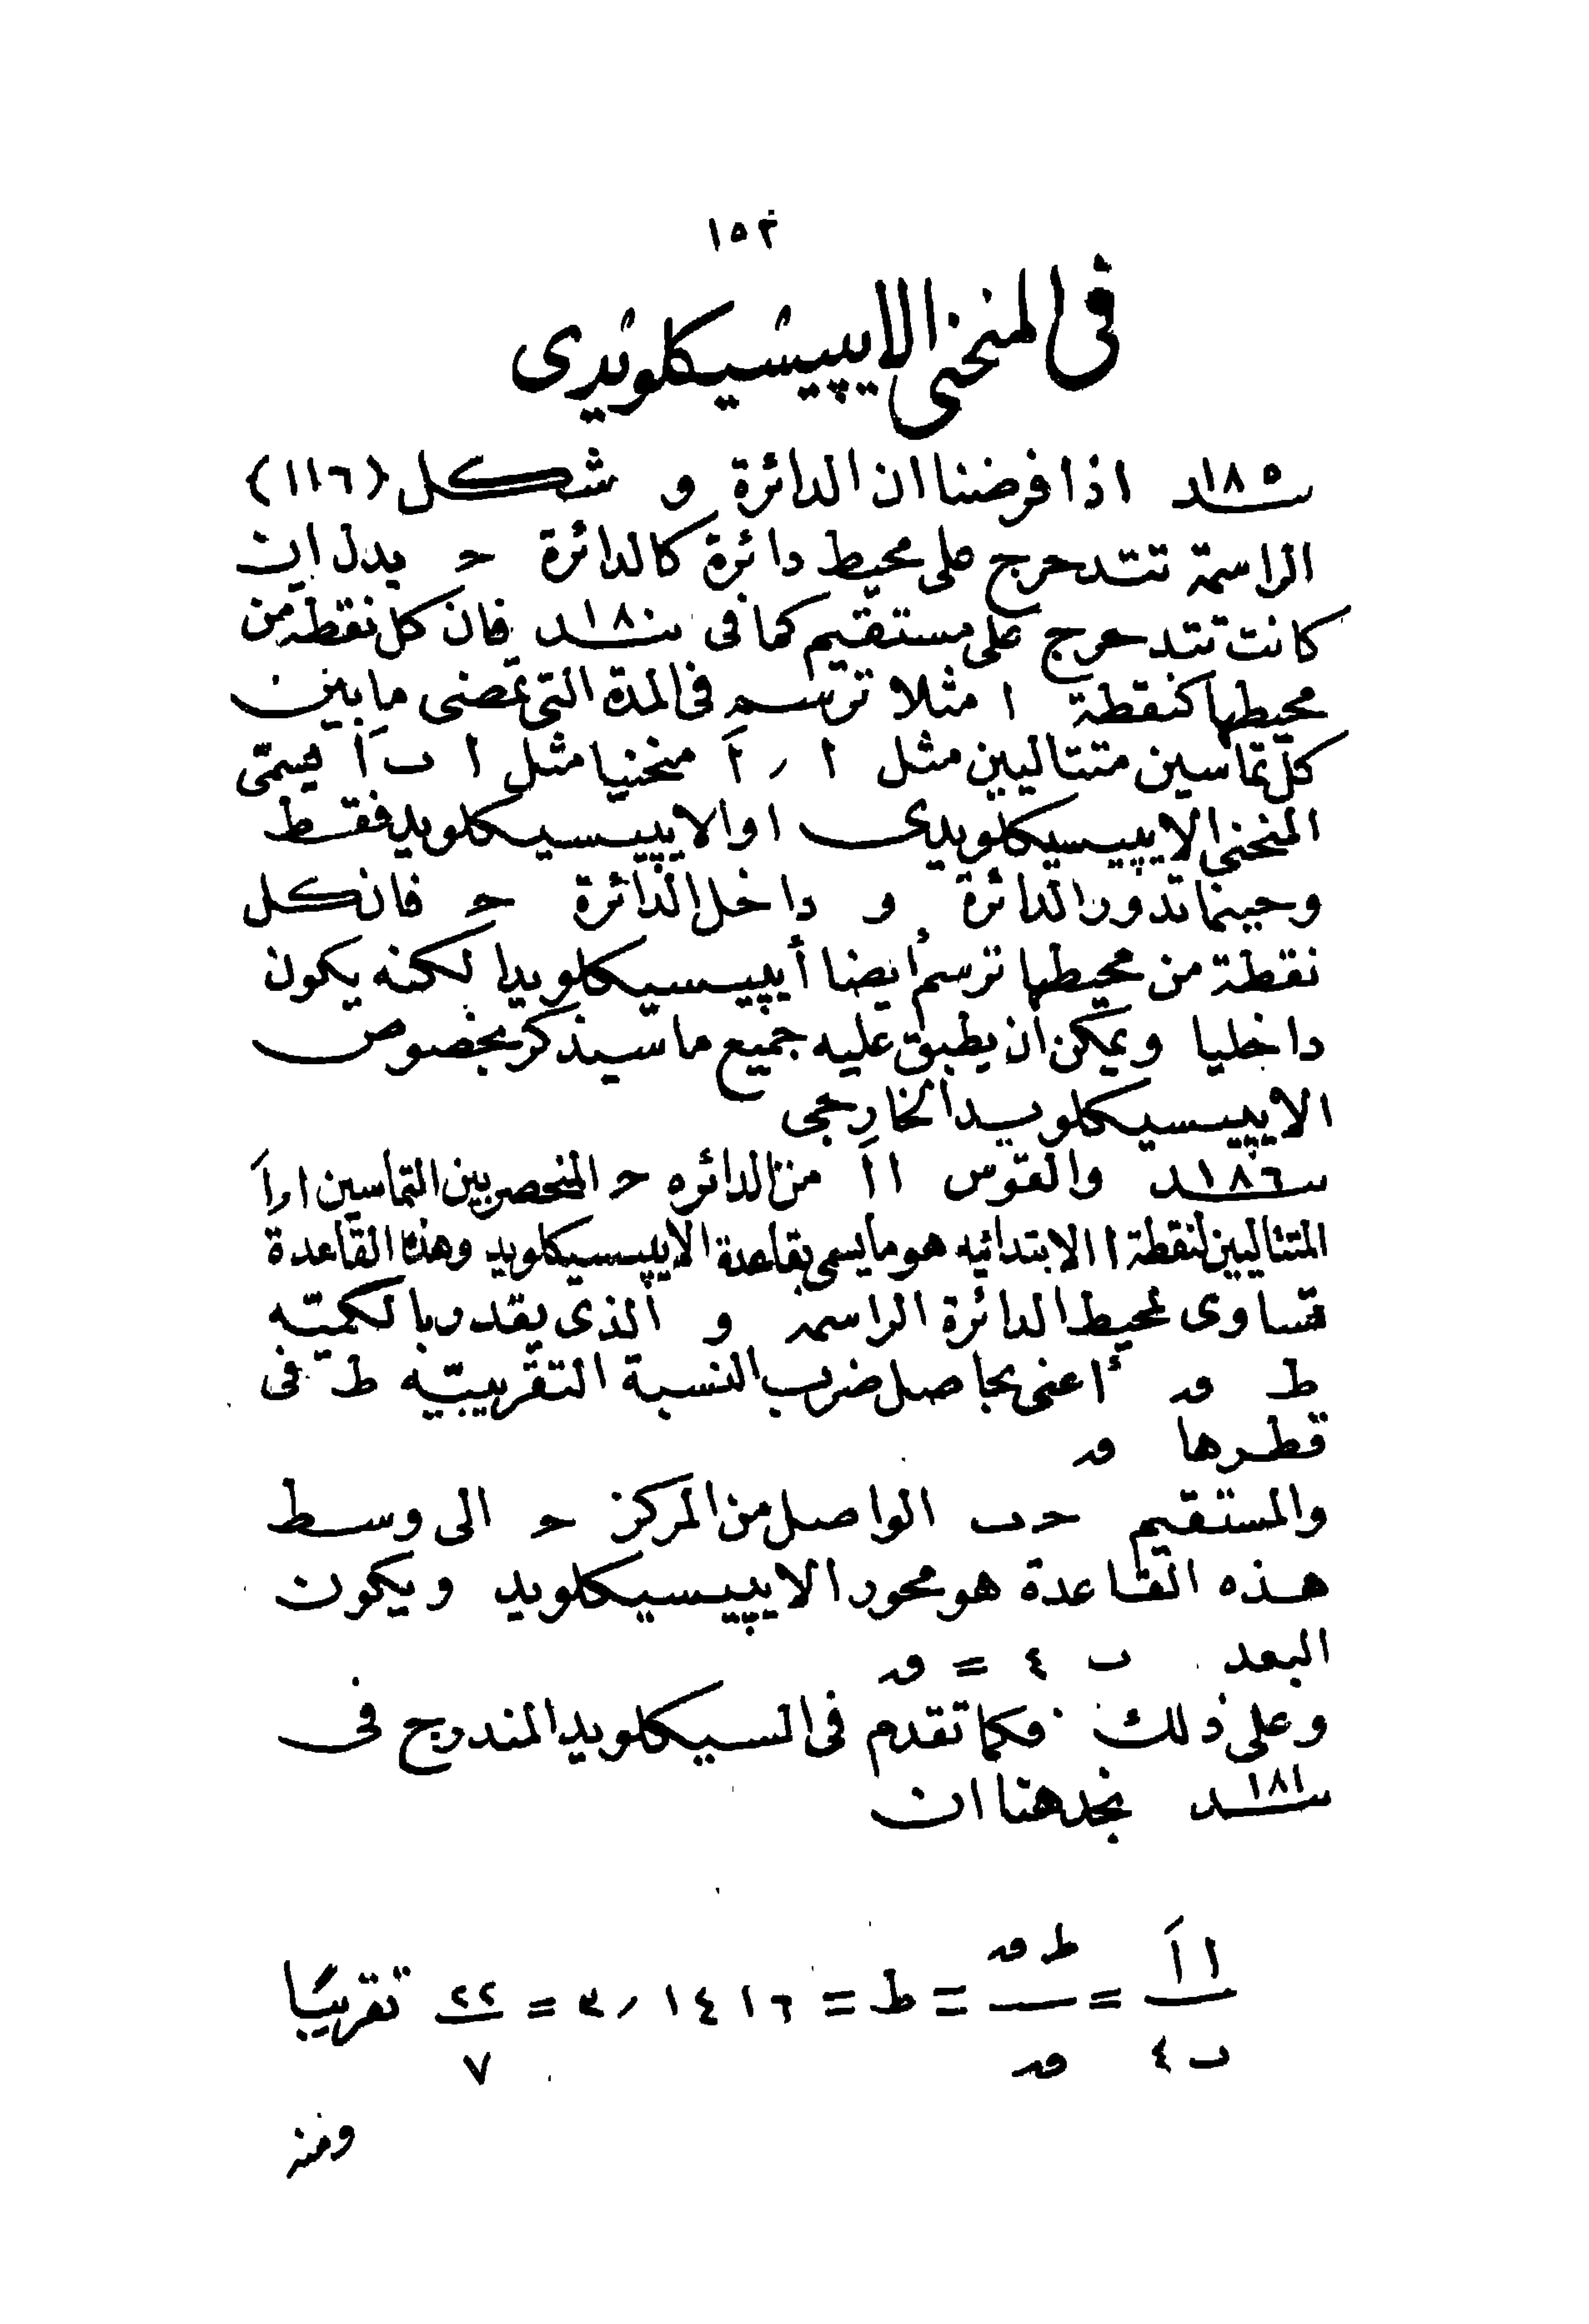 ١٥٢
فى المنحنى الايپيسيكلويدى
١٨٥ــند اذا فرضنا ان الدائرة و شكل (١١٦)
الراسمة تتدحرج على محيط دائرة كالدائرة حـ بدل ان
كانت تتدحرج على مستقيم كما فى ١٨٠ــند فان كل نقطة من
محيطها كنقطة ا مثلا ترسم فى المدة التى تمضى ما بين
كل تماسين متتاليين مثل ا ، اَ منحنيا مثل ا ب اَ يسمى
المنحنى الايپيسيكلويدى او الايپيسيكلويد فقط
وحينما تدور الدائرة و داخل الدائرة حـ فان كل
نقطة من محيطها ترسم أيضا أيپيسيكلويدا لكنه يكون
داخليا ويمكن ان يطبق عليه جميع ما سيذكر بخصوص
الايپيسيكلويد الخارجى
١٨٦ــند والقوس ا اَ من الدائره حـ المنحصر بين التماسين ا ، اَ
المتتاليين لنقطة ا الابتدائيه هو ما يسمى بقاعدة الايپيسيكلويد وهذه القاعدة
تساوى لمحيط الدائرة الراسمة و الذى يقدر بالكميّه
ط ى أعنى بحاصل ضرب النسبة التقريبيّه ط فى
قطرها ى
والمستقيم حـ ب الواصل من المركز حـ الى وسط
هذه القاعدة هو محور الايپيسيكلويد ويكون
البعد ب ٤ = ى
وعلى ذلك فكما تقدم فى السيكلويد المندرج فى
١٨١ــند نجد هنا ان
ا اَ / ب ٤ = ط ى / ى = ط = ٣٫١٤١٦ = ٢٢ / ٧ تقريبًا
ومنه